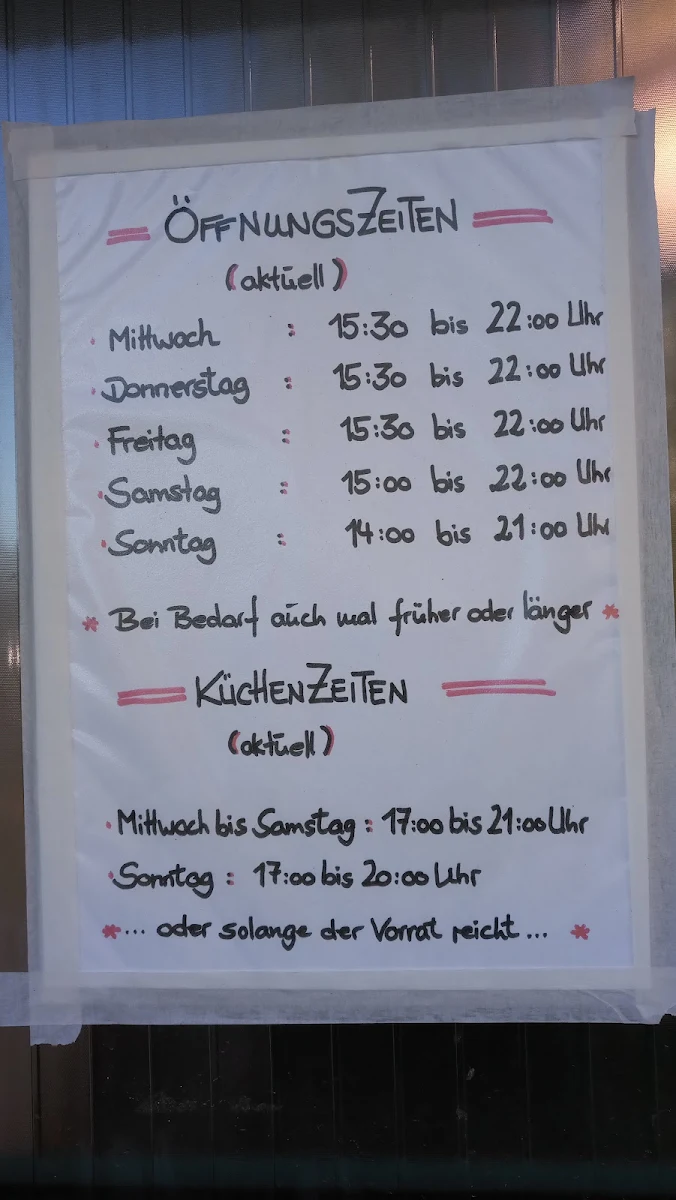 = ÖFFNUNGSZEITEN =
(aktuell)
· Mittwoch : 15:30 bis 22:00 Uhr
· Donnerstag : 15:30 bis 22:00 Uhr
· Freitag : 15:30 bis 22:00 Uhr
· Samstag : 15:00 bis 22:00 Uhr
· Sonntag : 14:00 bis 21:00 Uhr
* Bei Bedarf auch mal früher oder länger *
= KÜCHENZEITEN =
(aktuell)
· Mittwoch bis Samstag : 17:00 bis 21:00 Uhr
· Sonntag : 17:00 bis 20:00 Uhr
*... oder solange der Vorrat reicht ... *